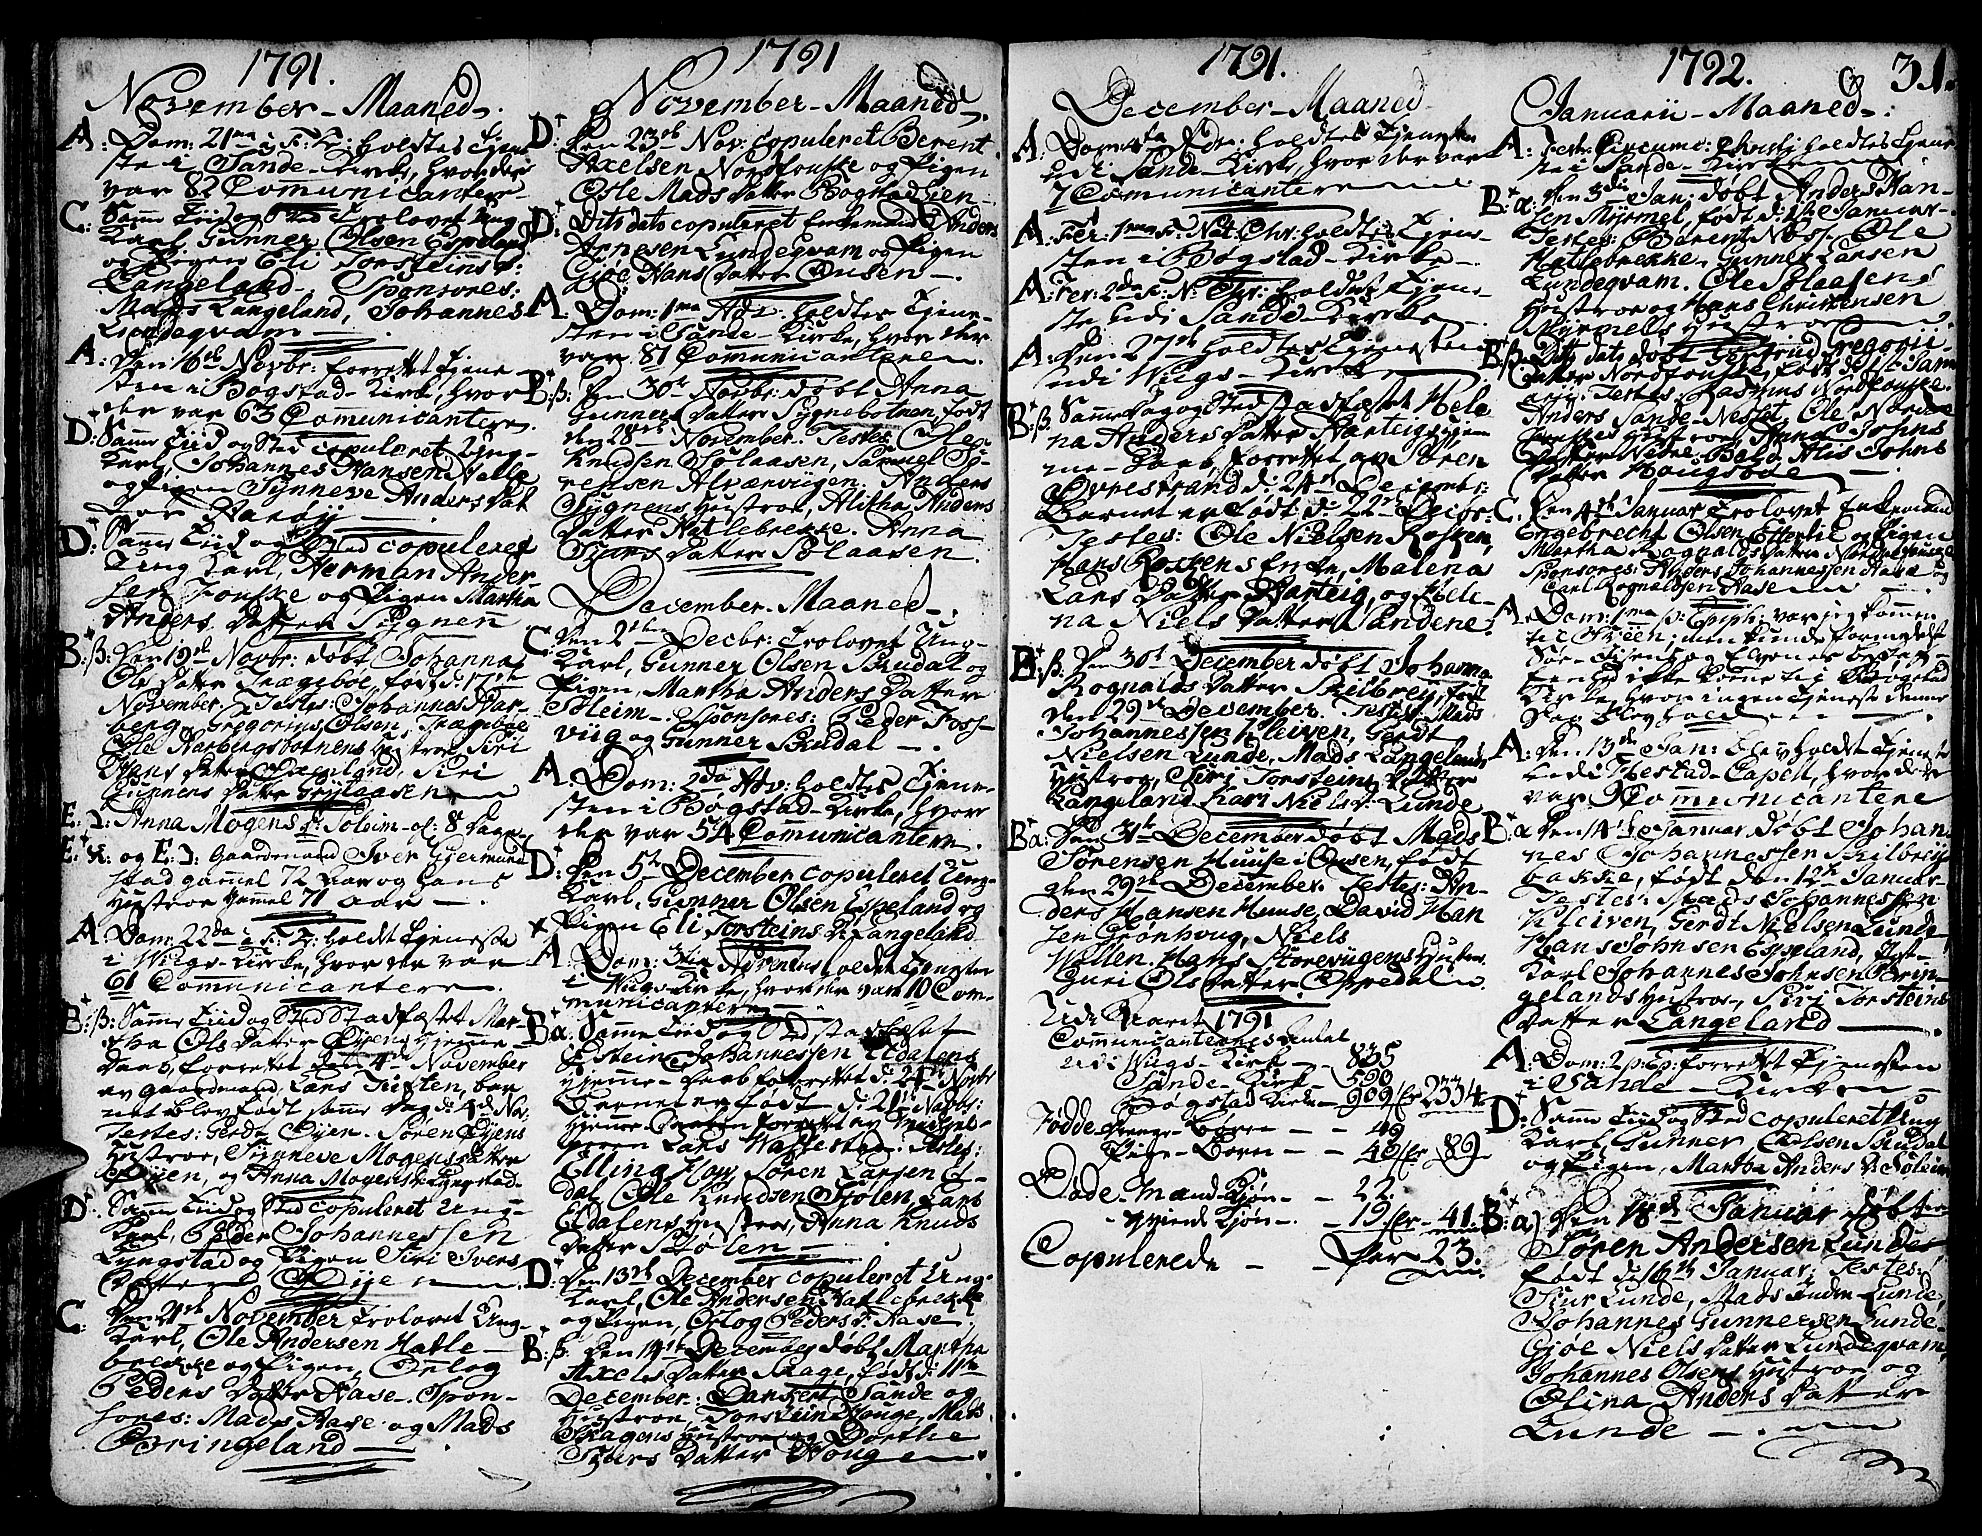 1791.
November - Maaned -.
A: Dom: 21ma p. Tr: holdtes Tjene-
ste i Sande-Kirke, hvor der
var 82 Comunicantere
C: Samme Tiid og Sted Trolovet Ung
Karl Gunner Olsen Espeland
og Pigen Eli Torsteins D:
Langeland. Sponsores:
Mads Langeland, Johannes
Lundeqvam -
A: Den 16de Novbr: forrettet Tjene-
sten i Bogstad Kirke, hvor
der var 63 Comunicantere.
D: Samme Tiid og Sted copuleret Ung-
Karl, Johannes Hansen Nelle
og Pigen Synneve Anders Dat
ter
D: Samme Tiid og Sted copuleret
Ung Karl, Herman Ander-
sen Fouske og Pigen Martha
Anders Datter Sygnen
B: ß: Den 19de Novbr: døbt Johanna
Ols Datter Trægebøe, født d: 17de
November. Testes: Johannes Har-
berg, Gregorius Olsen Trægebøe
Ole Harbergsbotnens Hustroe, Siri
Hans Datter Langeland, Siri
Gunners Datter Gryttaasen
E: 1. Anna Mogens D: Soleim - gl: 8 Dage
E: α: og E: 1: Gaardmand Iver Giermund-
stad gammel 72 Aar og hans
Hustroe gammel 71 aar -.
A: Dom: 22da p. Tr: holdt Tjeneste
i Wiigs-Kirke, hvor der var
61 Comunicantere.
B: ß: Samme Tiid og Sted Stadfæstet Mar-
tha Ols Datter Øyens Hjemme-
Daab, forrettet den 4de November
av Gaardmand Lars Tusten, bar-
net blev født samme Dag d: 4de Nov.
Testes: Gerdt Øyen. Søren Øyens
Hustroe, Synneve Mogens Datter
Øyen, og Anna Mogens D: Lyngstad.
D: Samme Tiid og Sted copuleret Ung-
Karl, Peder Johannessen
Lyngstad og Pigen Siri Ivers
Datter Øye
C: Den 21de November Trolovet Ung-
Karl, Ole Andersen Hatle-
brekke og Pigen, Orlog
Peders Datter Aase. Spon-
sores: Mads Aase og Mads
Bringeland -
1791
November - Maaned -.
D: Den 23de Nov: copuleret Berent
Axelsen Nordfouske og Pigen
Osle Mads Datter Bogstadlien -
D: Dito dato copuleret Enkemand Anders
Arnesen Lundeqvam og Pigen
Gjøe Hans Datter Qusen -.
A: Dom: 1ma Adv: holdtes Tjene-
sten i Sande-Kirke, hvor der
var 81 Comunicantere.
B: ß: Den 30te Novbr: døbt Anna
Gunners Datter Sygnebotnen, født
den 28de November. Testes: Ole
Knudsen Sølaasen, Samuel Sø-
rensen Alværviigen. Anders
Sygnens Hustroe, Alitha Anders
Datter Hatlebrekke. Anna
Siurs Datter Sølaasen
December. Maaned -.
C: Den 2den Decbr: Trolovet Ung-
Karl, Gunner Olsen Skudal og
Pigen, Martha Anders Datter
Søleim -. Sponsores: Peder Foss-
viig og Gunner Skudal -.
A: Dom: 2da Adv: holdtes Tjene-
sten i Bogstad-Kirke, hvor
der var 54 Comunicantere.
D: Den 5te December copuleret Ung-
Karl, Gunner Olsen Espeland og
Pigen Eli Torsteins D: Langeland
A: Dom: 3tia Adventus holdt Tjenesten
i Wiigs Kirke, hvor der var 10 Com-
municantere
B: α: Samme Tiid og Sted stadfæstet
Østein Johannessen Eldalens
Hjemme-Daab forrettet d: 24de Novbr
Barnet er født d: 21de Novbr:
Hjemme-Daaben forrettet av
Lars Wallestad. Testes:
Elling Høy, Søren Larsen El-
dal, Ole Knudsen Stølen, Lars
Eldalens Hustroe, Anna Knuds
Datter Stølen -
D: Den 13de December copuleret Ung-
Karl, Ole Andersen Hatlebrekke
og Pigen, Orlog Peders D: Aase.
B: ß: Den 14de December døbt Martha
Axels Datter Skage, født d: 11te
December: Dankert Sande og
Hustroe, Torstein Houge, Mads
Skagens Hustroe og Dorthe
Siurs Datter Hougen
1791.
December - Maaned
A: Dom: 4ta Adv: holdtes Tjenesten
udi Sande-Kirke, hvor der var
7 Comunicantere
A: Fer: 1ma F: Nat: Chr: holdtes Tjene-
sten i Bogstad-Kirke -
A: Fer: 2da F: N: Chr: holdtes Tjene-
ste udi Sande-Kirke -.
A: Den 27de holdtes Tjenesten
udi Wiigs-Kirke
B: ß: Samme Dag og Sted stadfæstet Hele-
na Anders Datter Hartuigs Hjem-
me-Daab, forrettet av Søren
Øvrestrand d: 24de Decembr:
Barnet er født d: 22de Decbr:
Testes: Ole Nielsen Rossen,
Hans Rossens Enke, Malena
Lars Datter Hartvig, og Hele-
na Niels Datter Sandene.
B: ß: Den 30te December døbt Johanna
Rognalds Datter Skilbrey, født
den 29de December. Testes: Mads
Johannessen Kleiven, Gerdt
Nielsen Lunde, Mads Langelands
Hustroe, Siri Torsteins Datter
Langeland Kari Niels D: Lunde
B: α: Den 31te December døbt Mads
Sørensen Huuse i Qusen, født
den 29de December. Testes: An-
ders Hansen Huuse, David Han
sen Grønhoug, Niels
Wallen. Hans Storeviigens Hustroe.
Guri Ols Datter Oppedal
Udi Aaret 1791
Communicanternes Antal
udi Wiigs-Kirke - 835
Sande-Kirke - 590
Bogstad Kirke - 909 er 2334
Fødde Drenge-Børn - - 49
Pige-Børn - - 40 er 89
Døde-Mand-Kjøn - - 22
- Qvinde Kjøn - - 19 er 41
Copulerede - - Par 23.
1792. 31.
Januarii - Maaned -.
A: Fest: Circumc: Christi holdtes Tjene-
ste i Sande-Kirke
B: α: Den 3die Jan: døbt Anders Han-
sen Myrmel, født d: 1te Januar.
Testes: Berent Nøss. Ole
Hatlebrekke, Gunner Larsen
Lundeqvam. Ole Sølaasens
Hustroe og Hans Christensen
Myrmels Hustroe
B: ß: Dito dato døbt Gertrud Gregorii-
Datter Nordfouske, født d: 1te Janu-
arii. Testes: Rasmus Nordfouske.
Anders Sande-Nestet, Ole Nord-
fouskes Hustroe, Anna Johns
Datter Nedre-Bald, Alis Johns
Datter Hougsbøe
C. Den 4de Januar Trolovet Enkemand
Engebrecht Olsen Espetvet og Pigen
Martha Rognalds Datter
Sponsores: Anders Johannessen Aase og
Carl Rognaldsen Aase
A: Dom: 1ma p: Epiph: var jeg kommen
til
kunde ikke komme til Bogstad
Kirke, hvor ingen Tjeneste denne
Dag blev holdt
A: Den 13de Jan: blev holdt Tjeneste
udi Hestad-Capell, hvor der
var Communicantere
B: α Den 14de Januar døbt Johan-
nes Johannessen Skilbreys-
bakke, født den 12te Januar
Testes: Mads Johannessen
Kleiven, Gerdt Nielsen Lunde
Hans Johnsen Espeland,
Karl Johannes Johnsen Brin-
gelands Hustroe, Siri Torsteins
Datter Langeland -
A: Dom: 2 p: Ep: forrettet Tjenesten
i Sande-Kirken -
D: Samme Tiid og Sted copuleret Ung
Karl Gunner Olsen Skudal
og Pigen, Martha Anders D: Søleim
B: α) Den 18de Januar døbt
Søren Andersen Lunde
født d: 16de Januar: Testes:
Siur Lunde, Mads Indre-Lunde,
Johannes Gunnersen Lunde
Gjøe Niels Datter Lundeqvam
Johannes Olsens Hustroe og
Olina Anders Datter
Lunde -